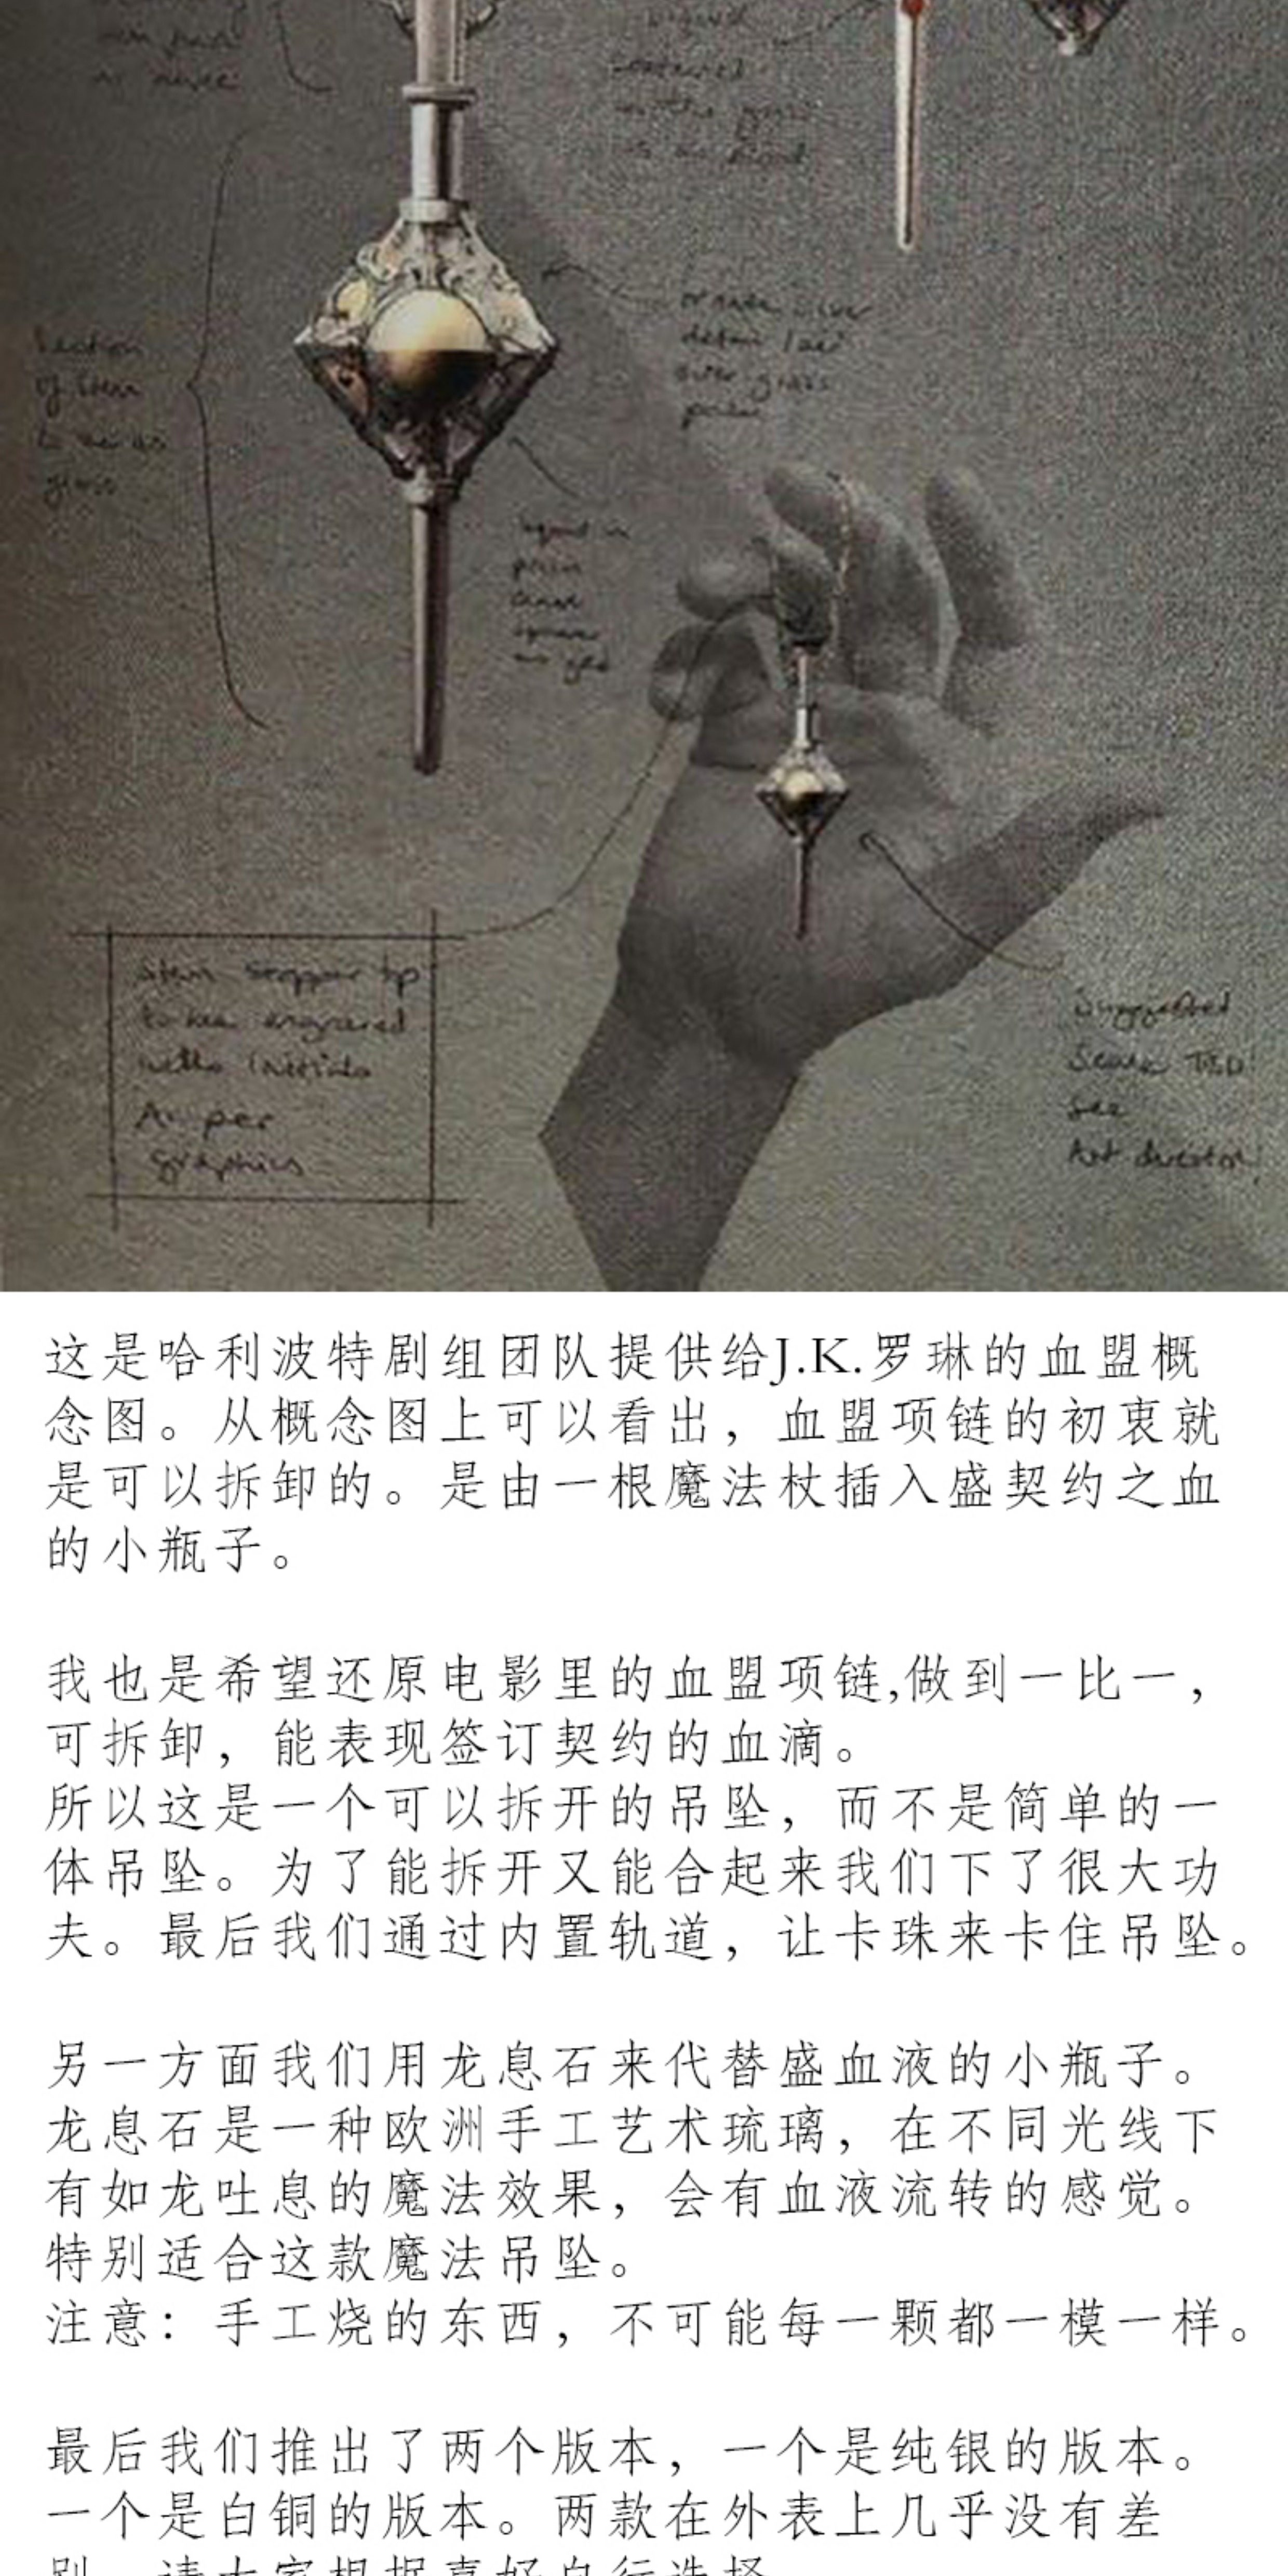 of stem
glass
outer glass
Stem stopper tip
to be engraved
with initials
As per
graphics
Suggested
Scale TBD
See
Art director
这是哈利波特剧组团队提供给J.K.罗琳的血盟概
念图。从概念图上可以看出，血盟项链的初衷就
是可以拆卸的。是由一根魔法杖插入盛契约之血
的小瓶子。
我也是希望还原电影里的血盟项链,做到一比一，
可拆卸，能表现签订契约的血滴。
所以这是一个可以拆开的吊坠，而不是简单的一
体吊坠。为了能拆开又能合起来我们下了很大功
夫。最后我们通过内置轨道，让卡珠来卡住吊坠。
另一方面我们用龙息石来代替盛血液的小瓶子。
龙息石是一种欧洲手工艺术琉璃，在不同光线下
有如龙吐息的魔法效果，会有血液流转的感觉。
特别适合这款魔法吊坠。
注意：手工烧的东西，不可能每一颗都一模一样。
最后我们推出了两个版本，一个是纯银的版本。
一个是白铜的版本。两款在外表上几乎没有差
别，请大家根据喜好自行选择